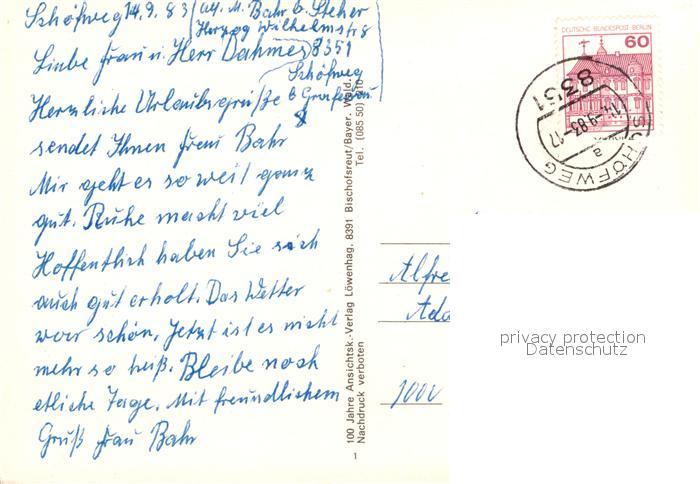 Schöfweg 14.9.83 (Adr. M. Bahr b. Steher
Herzog Wilhelmstr 8
Liebe Frau u. Herr Dahmes 8351
Schöfweg
Herzliche Urlaubsgrüße b Grafenau
sendet Ihnen Frau Bahr
Mir geht es so weit ganz
gut. Ruhe macht viel
Hoffentlich haben Sie sich
auch gut erholt. Das Wetter
war schön. Jetzt ist es nicht
mehr so heiß. Bleibe noch
etliche Tage. Mit freundlichem
Gruß Frau Bahr
100 Jahre Ansichtsk.-Verlag Löwenhag, 8391 Bischofsreut/Bayer. Wald.
Nachdruck verboten
Tel. (085 50)
1
DEUTSCHE BUNDESPOST BERLIN
60
8351
14.-9.83-17
a
SCHÖFWEG
Alfre
Ada
1000
privacy protection
Datenschutz